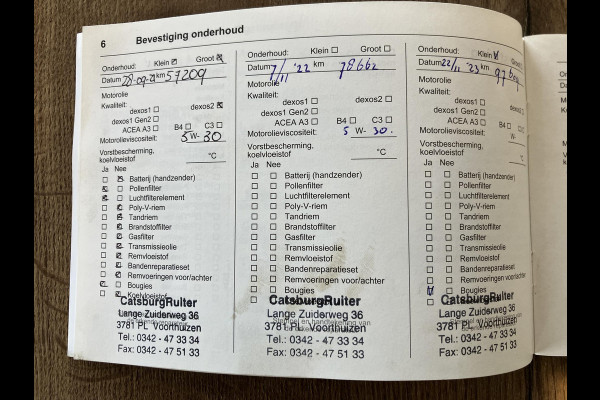 6 Bevestiging onderhoud
Onderhoud: Klein Groot
Datum 28-09-21 km 57209
Motorolie
Kwaliteit:
dexos1 dexos2
dexos1 Gen2
ACEA A3 B4 C3
Motorolieviscositeit: 5W-30
Vorstbescherming,
koelvloeistof °C
Ja Nee
Batterij (handzender)
Pollenfilter
Luchtfilterelement
Poly-V-riem
Tandriem
Brandstoffilter
Gasfilter
Transmissieolie
Remvloeistof
Bandenreparatieset
Remvoeringen voor/achter
Bougies
Koelvloeistof
CatsburgRuiter
Lange Zuiderweg 36
3781 PL Voorthuizen
Tel.: 0342 - 47 33 34
Fax: 0342 - 47 51 33
Onderhoud: Klein Groot
Datum 7/11 '22 km 78662
Motorolie
Kwaliteit:
dexos1 dexos2
dexos1 Gen2
ACEA A3 B4 C3
Motorolieviscositeit: 5 W- 30.
Vorstbescherming,
koelvloeistof °C
Ja Nee
Batterij (handzender)
Pollenfilter
Luchtfilterelement
Poly-V-riem
Tandriem
Brandstoffilter
Gasfilter
Transmissieolie
Remvloeistof
Bandenreparatieset
Remvoeringen voor/achter
Bougies
CatsburgRuiter
Lange Zuiderweg 36
Stempel en handtekening van
3781 PL Voorthuizen
Tel.: 0342 - 47 33 34
Fax: 0342 - 47 51 33
Onderhoud: Klein Groot
Datum 22/11 '23 km
Motorolie
Kwaliteit:
dexos1 dexos2
dexos1 Gen2
ACEA A3 B4 C3
Motorolieviscositeit: W-
Vorstbescherming,
koelvloeistof °C
Ja Nee
Batterij (handzender)
Pollenfilter
Luchtfilterelement
Poly-V-riem
Tandriem
Brandstoffilter
Gasfilter
Transmissieolie
Remvloeistof
Bandenreparatieset
Remvoeringen voor/achter
Bougies
CatsburgRuiter
Lange Zuiderweg 36
3781 PL Voorthuizen
Tel.: 0342 - 47 33 34
Fax: 0342 - 47 51 33